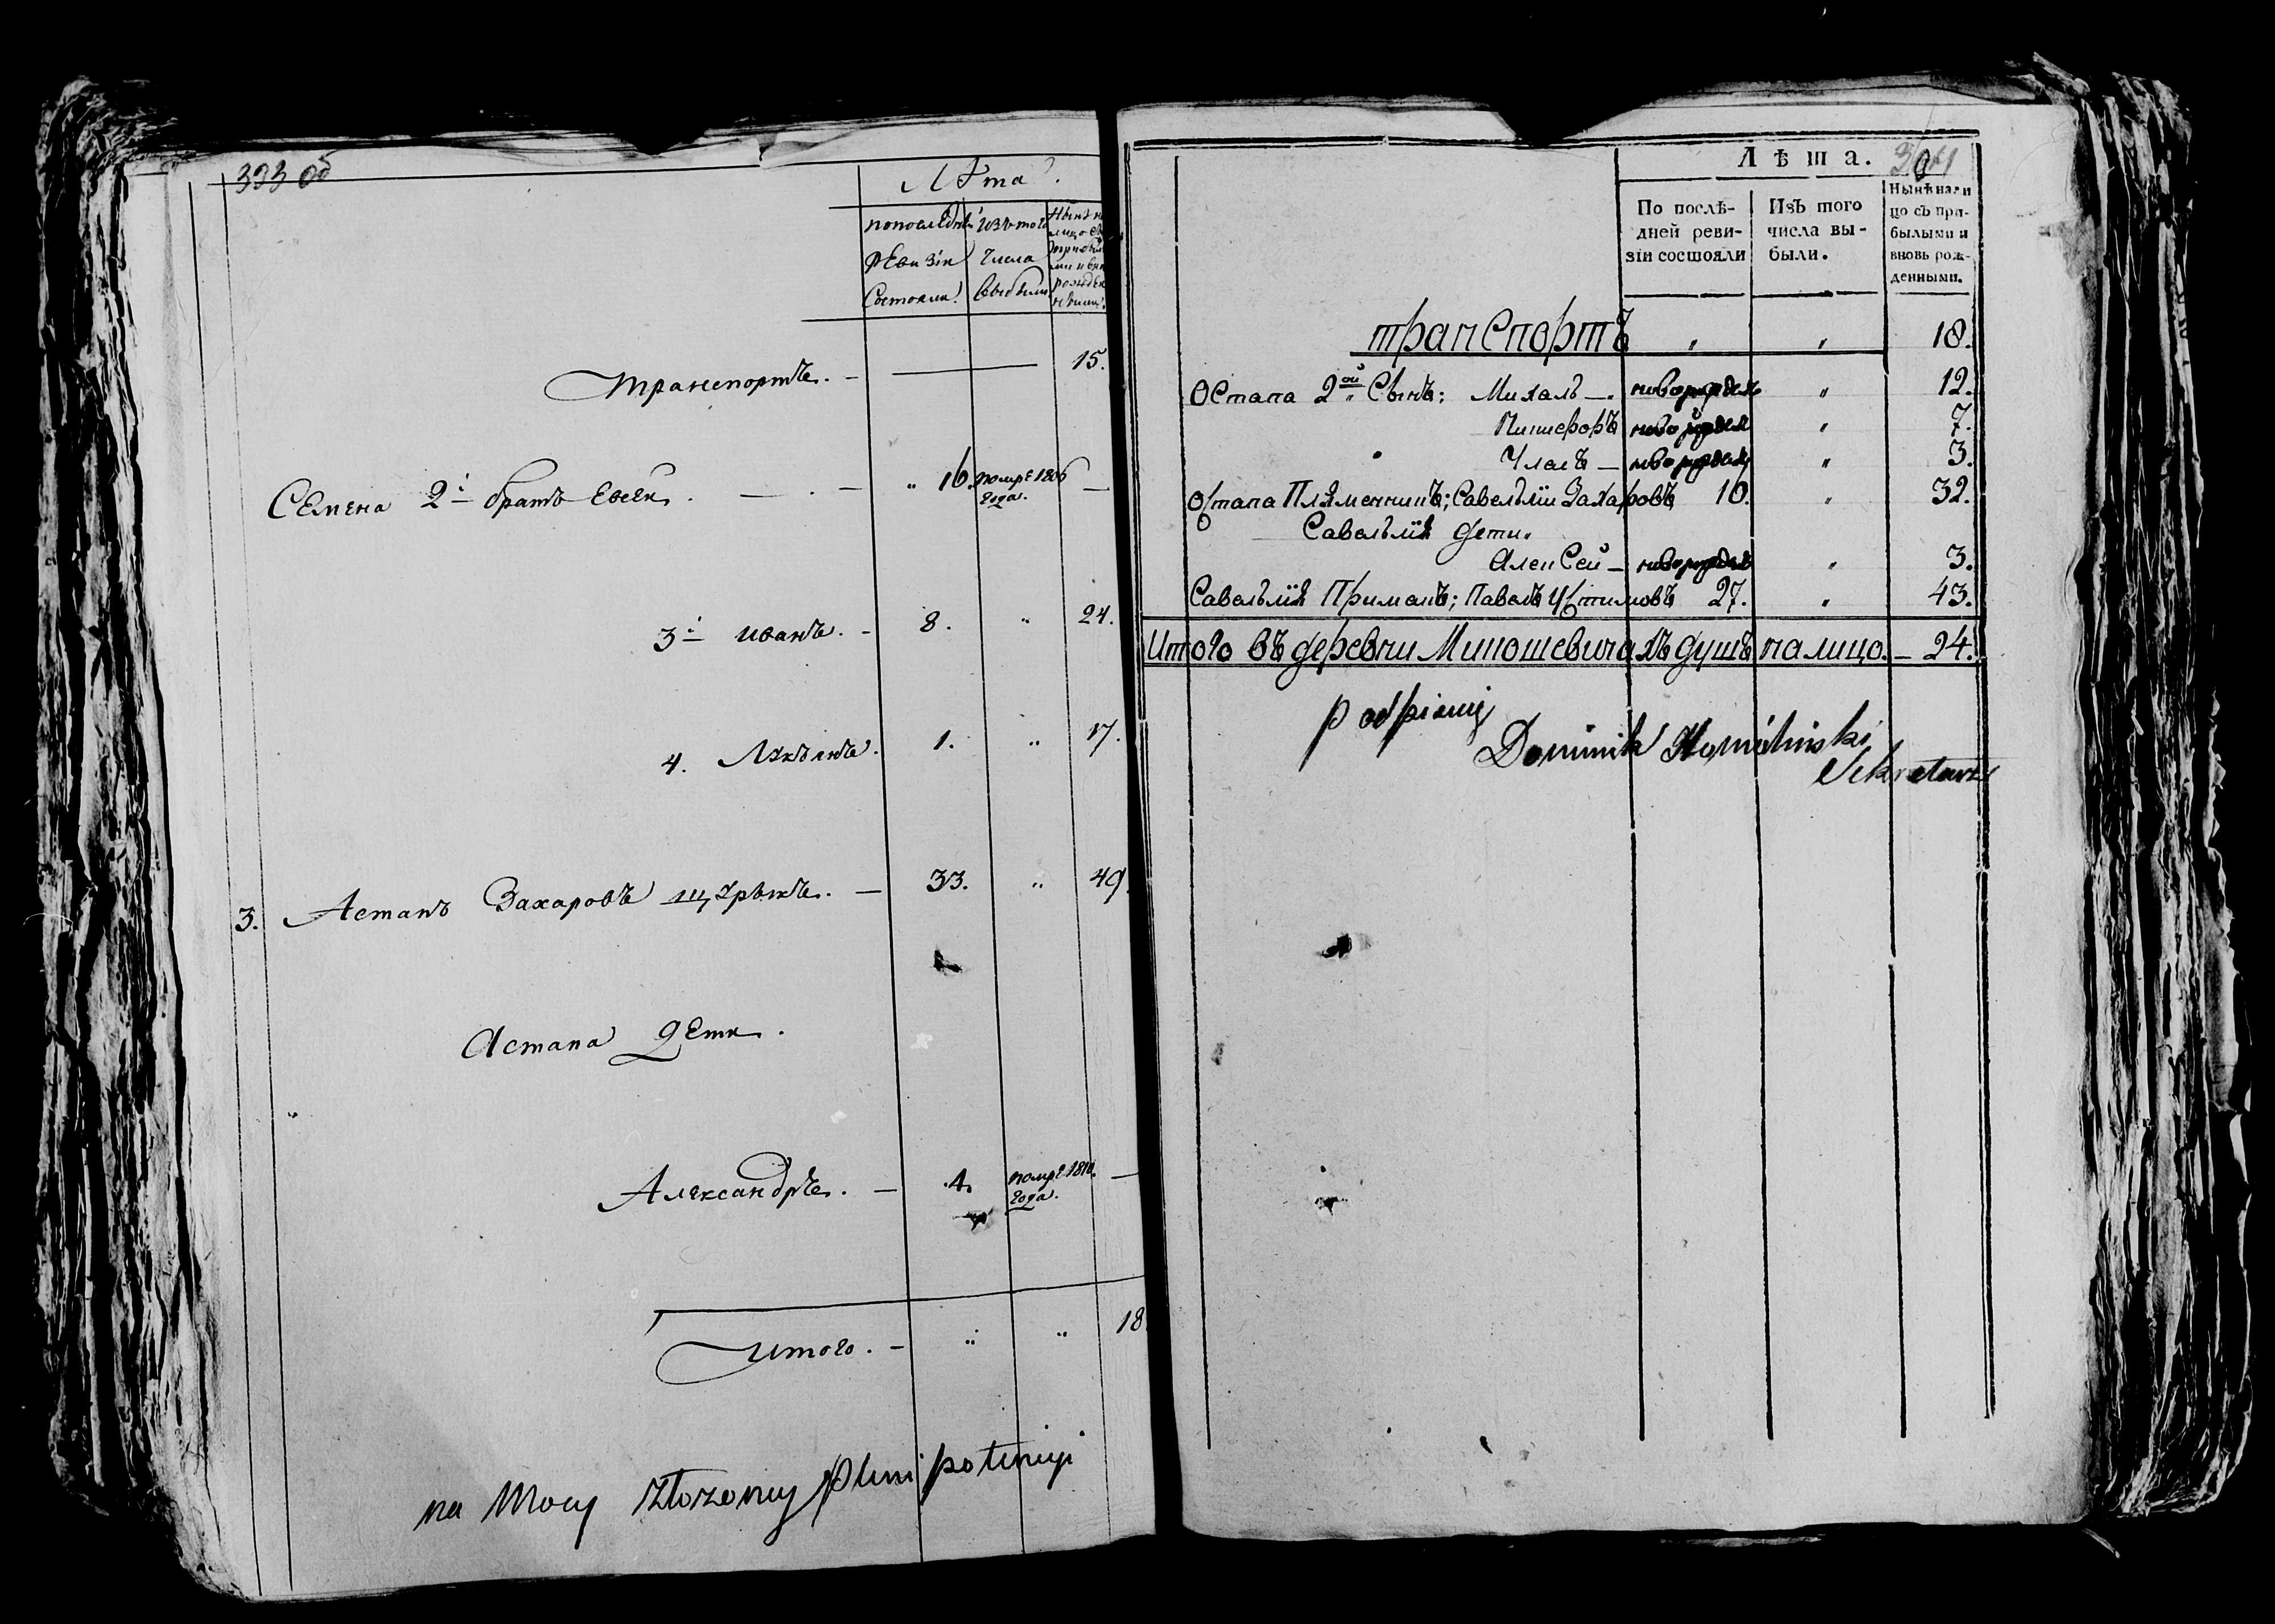 393 об
Лѣта.
по последней ревизіи состояли. изъ того числа выбыли
Транспортъ. — 15.
Семена 2й братъ Евсей. — 16. помре 1806 года. —
3й Иванъ. — 8. " 24.
4. 1. " 17.
3. Астапъ Захаровъ — 33. " 49.
Астапа дети.
Александръ. — 4. помре 1810. года. —
Итого. — " " 18
na Mocy złożoney plenipotencyi
Лѣта.
По послѣдней ревизіи состояли
Изъ того числа выбыли.
Нынѣ на лицо съ прибылыми и вновь рожденными.
транспортъ " " 18.
Остапа 2ой Сынъ; Михалъ —. новорожден " 12.
новорожден " 7.
новорожден " 3.
Остапа Пляменникъ; Савельій Захаровъ 10. " 32.
Савельія дети.
Алексей — новорожден " 3.
Савельія Примакъ; Павелъ Устимовъ 27. " 43.
Итого въ деревни Милошевичахъ душъ налицо. — 24.
podpisuię
Dominik
Sekretarz